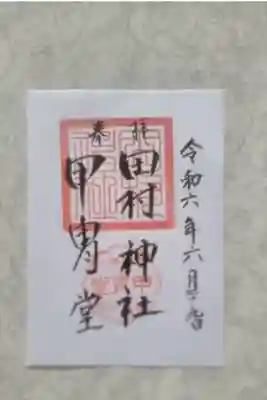 令和六年六月
奉拝
田村神社
甲冑堂